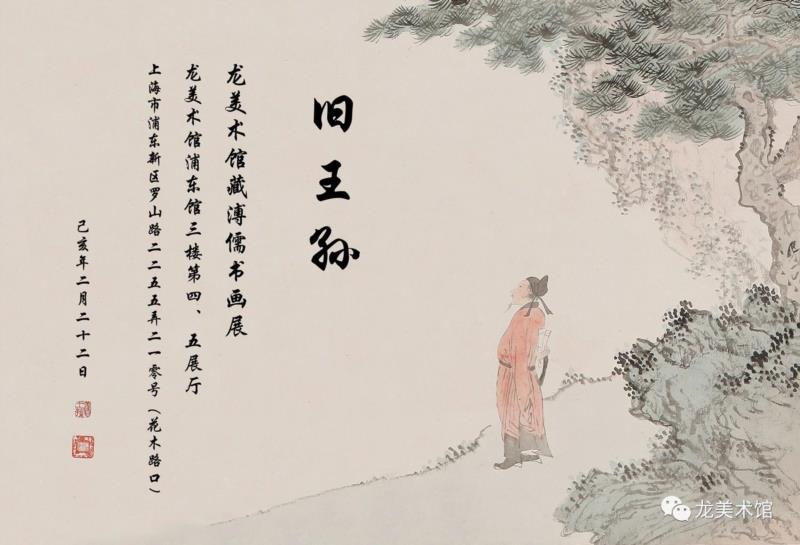 旧王孙
龙美术馆藏溥儒书画展
龙美术馆浦东馆三楼第四、五展厅
上海市浦东新区罗山路二二五五弄二一零号（花木路口）
己亥年二月二十二日
龙美术馆